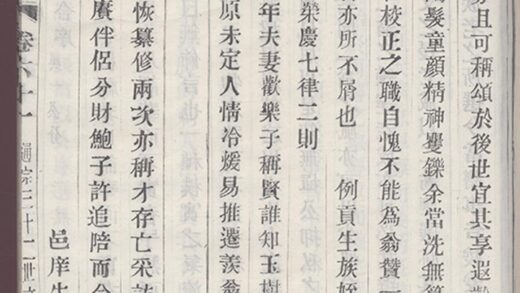 且可稱頌於後世宜其享遐
髮童顏精神矍鑠余當洗無
校正之職自愧不能為翁贊一
亦所不屑也　例貢生族姪
榮慶七律二則
年夫妻歡樂子稱賢誰知玉樹
原未定人情冷煖易推遷羨翁
恢纂修兩次亦稱才存亡采
賡伴侶分財鮑子許追陪而今
邑庠生
卷六十一　三十二世